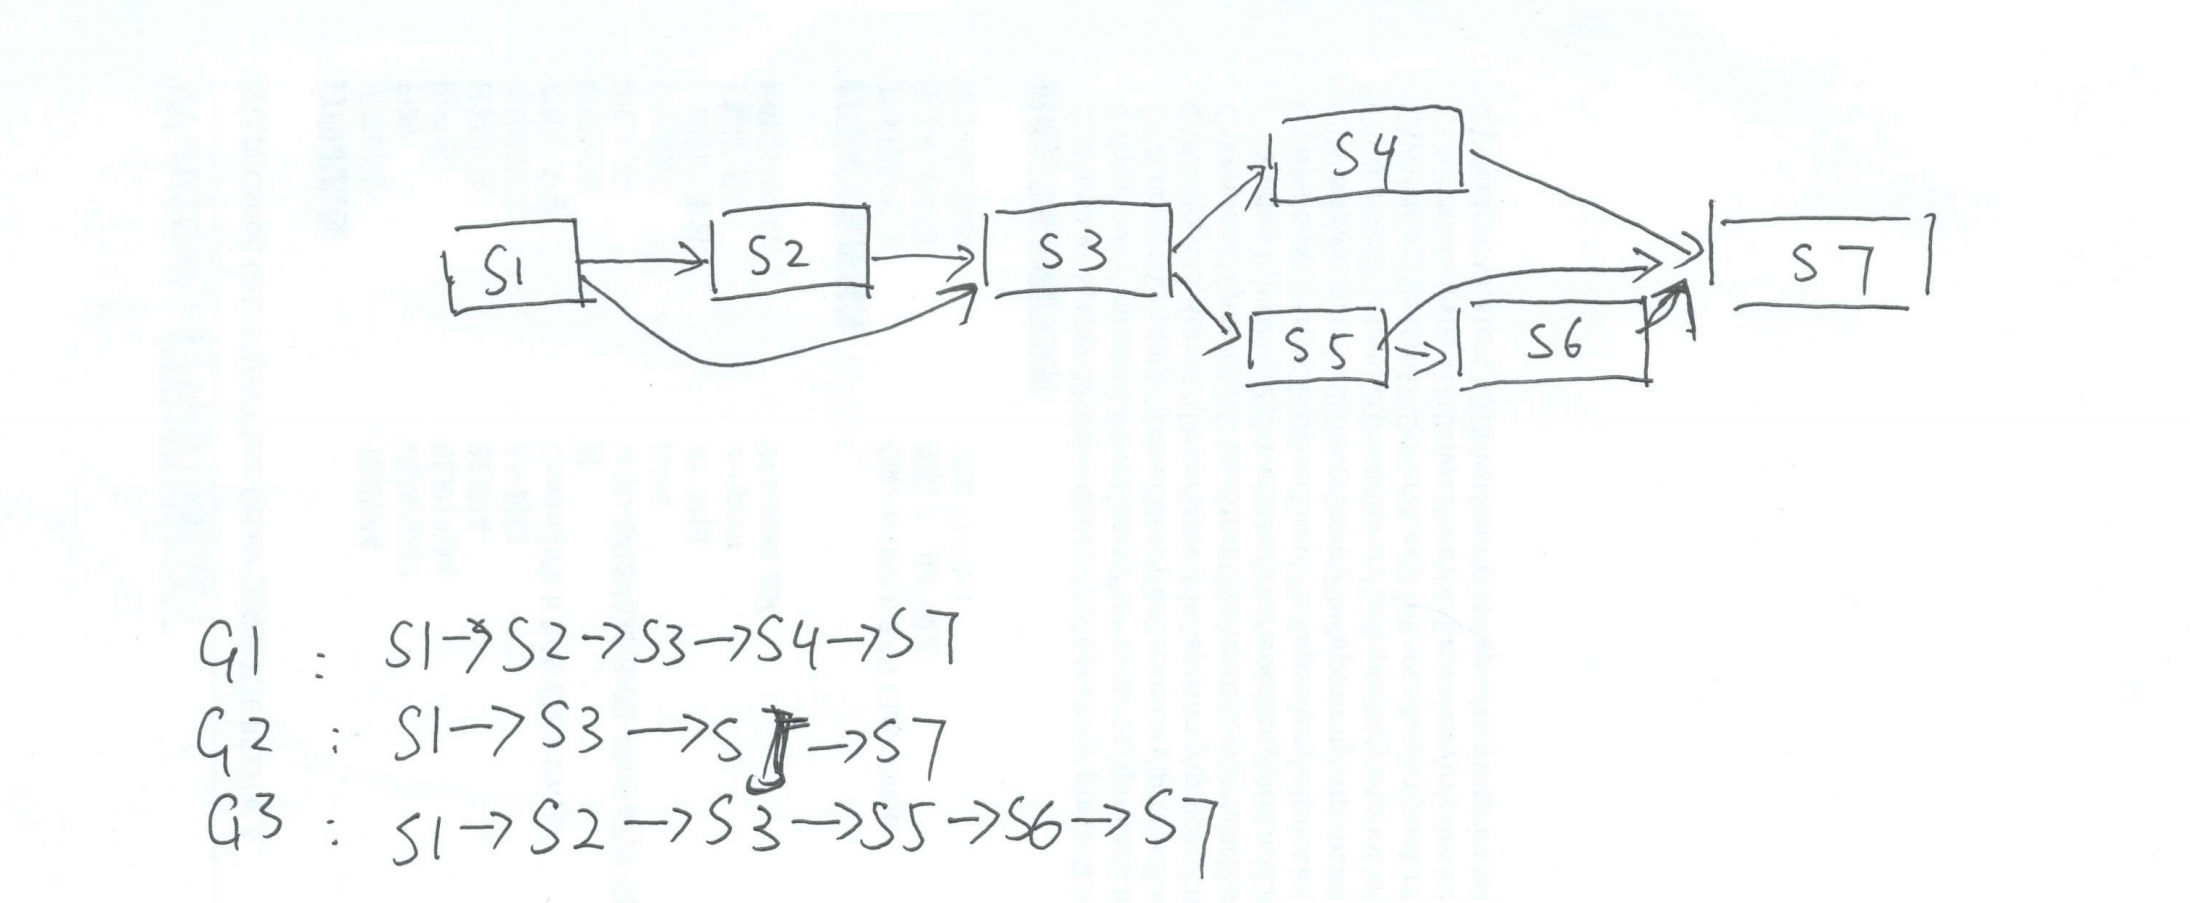 S1 S2 S3 S4 S5 S6 S7
G1 : S1→S2→S3→S4→S7
G2 : S1→S3→S5→S7
G3 : S1→S2→S3→S5→S6→S7